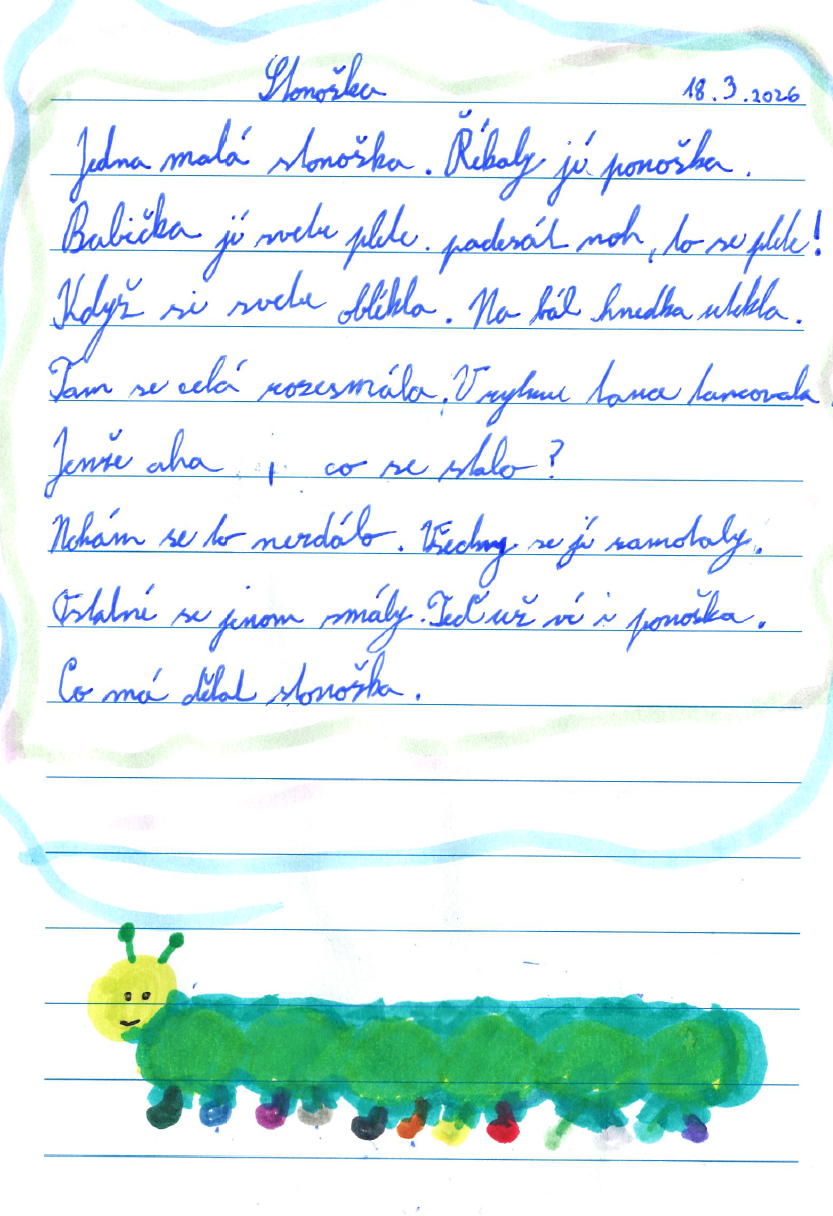 Stonoška 18.3.2026
Jedna malá stonoška. Říkaly jí ponoška.
Babička jí svetr plete. padesát noh, to se plete!
Když si svetr oblékla. Na bál hnedka utekla.
Tam se celá rozesmála. V rytmu tance tancovala.
Jenže aha, co se stalo?
Nohám se to nezdálo. Všechny se jí zamotaly.
Ostatní se jenom smály. Teď už ví i ponoška.
Co má dělat stonoška.